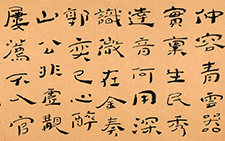 仲容青雲器
實稟生民秀
達音何用深
識微在金奏
郭奕已心醉
山公非虛覯
屢薦不入官